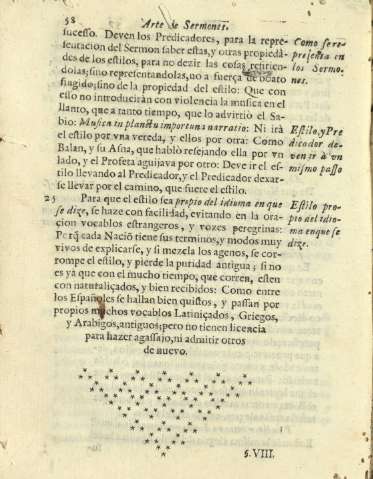 58
Arte de Sermones,
sucesso. Deven los Predicadores, para la repre-
sentacion del Sermon saber estas, y otras propieda-
des de los estilos, para no dezir las cosas refirien-
dolas; sino representandolas, no a fuerça de boato
fingido; sino de la propiedad del estilo: Que con
esso no introducirán con violencia la musica en el
llanto, que a tanto tiempo, que lo advirtiò el Sa-
bio: Musica in planctu importuna narratio: Ni irà
el estilo por vna vereda, y ellos por otra: Como
Balan, y su Asna, que hablò resejando ella por vn
lado, y el Profeta aguijava por otro: Deve ir el es-
tilo llevando al Predicador, y el Predicador dexar-
se llevar por el camino, que fuere el estilo.
Como se re-
presenta en
los Sermo-
nes.
Estilo, y Pre
dicador de-
ven ir à vn
mismo passo
25 Para que el estilo sea propio del idioma en que
se dize, se haze con facilidad, evitando en la ora-
cion vocablos estrangeros, y vozes peregrinas:
Porq̃ cada Nació tiene sus terminos, y modos muy
vivos de explicarse, y si mezcla los agenos, se cor-
rompe el estilo, y pierde la puridad antigua; si no
es ya que con el mucho tiempo, que corren, esten
con naturaliçados, y bien recibidos: Como entre
los Españoles se hallan bien quistos, y passan por
propios muchos vocablos Latiniçados, Griegos,
y Arabigos, antiguos; pero no tienen licencia
para hazer agassajo, ni admitir otros
de nuevo.
Estilo pro-
pio del idio-
ma en que se
dize.
§. VIII.